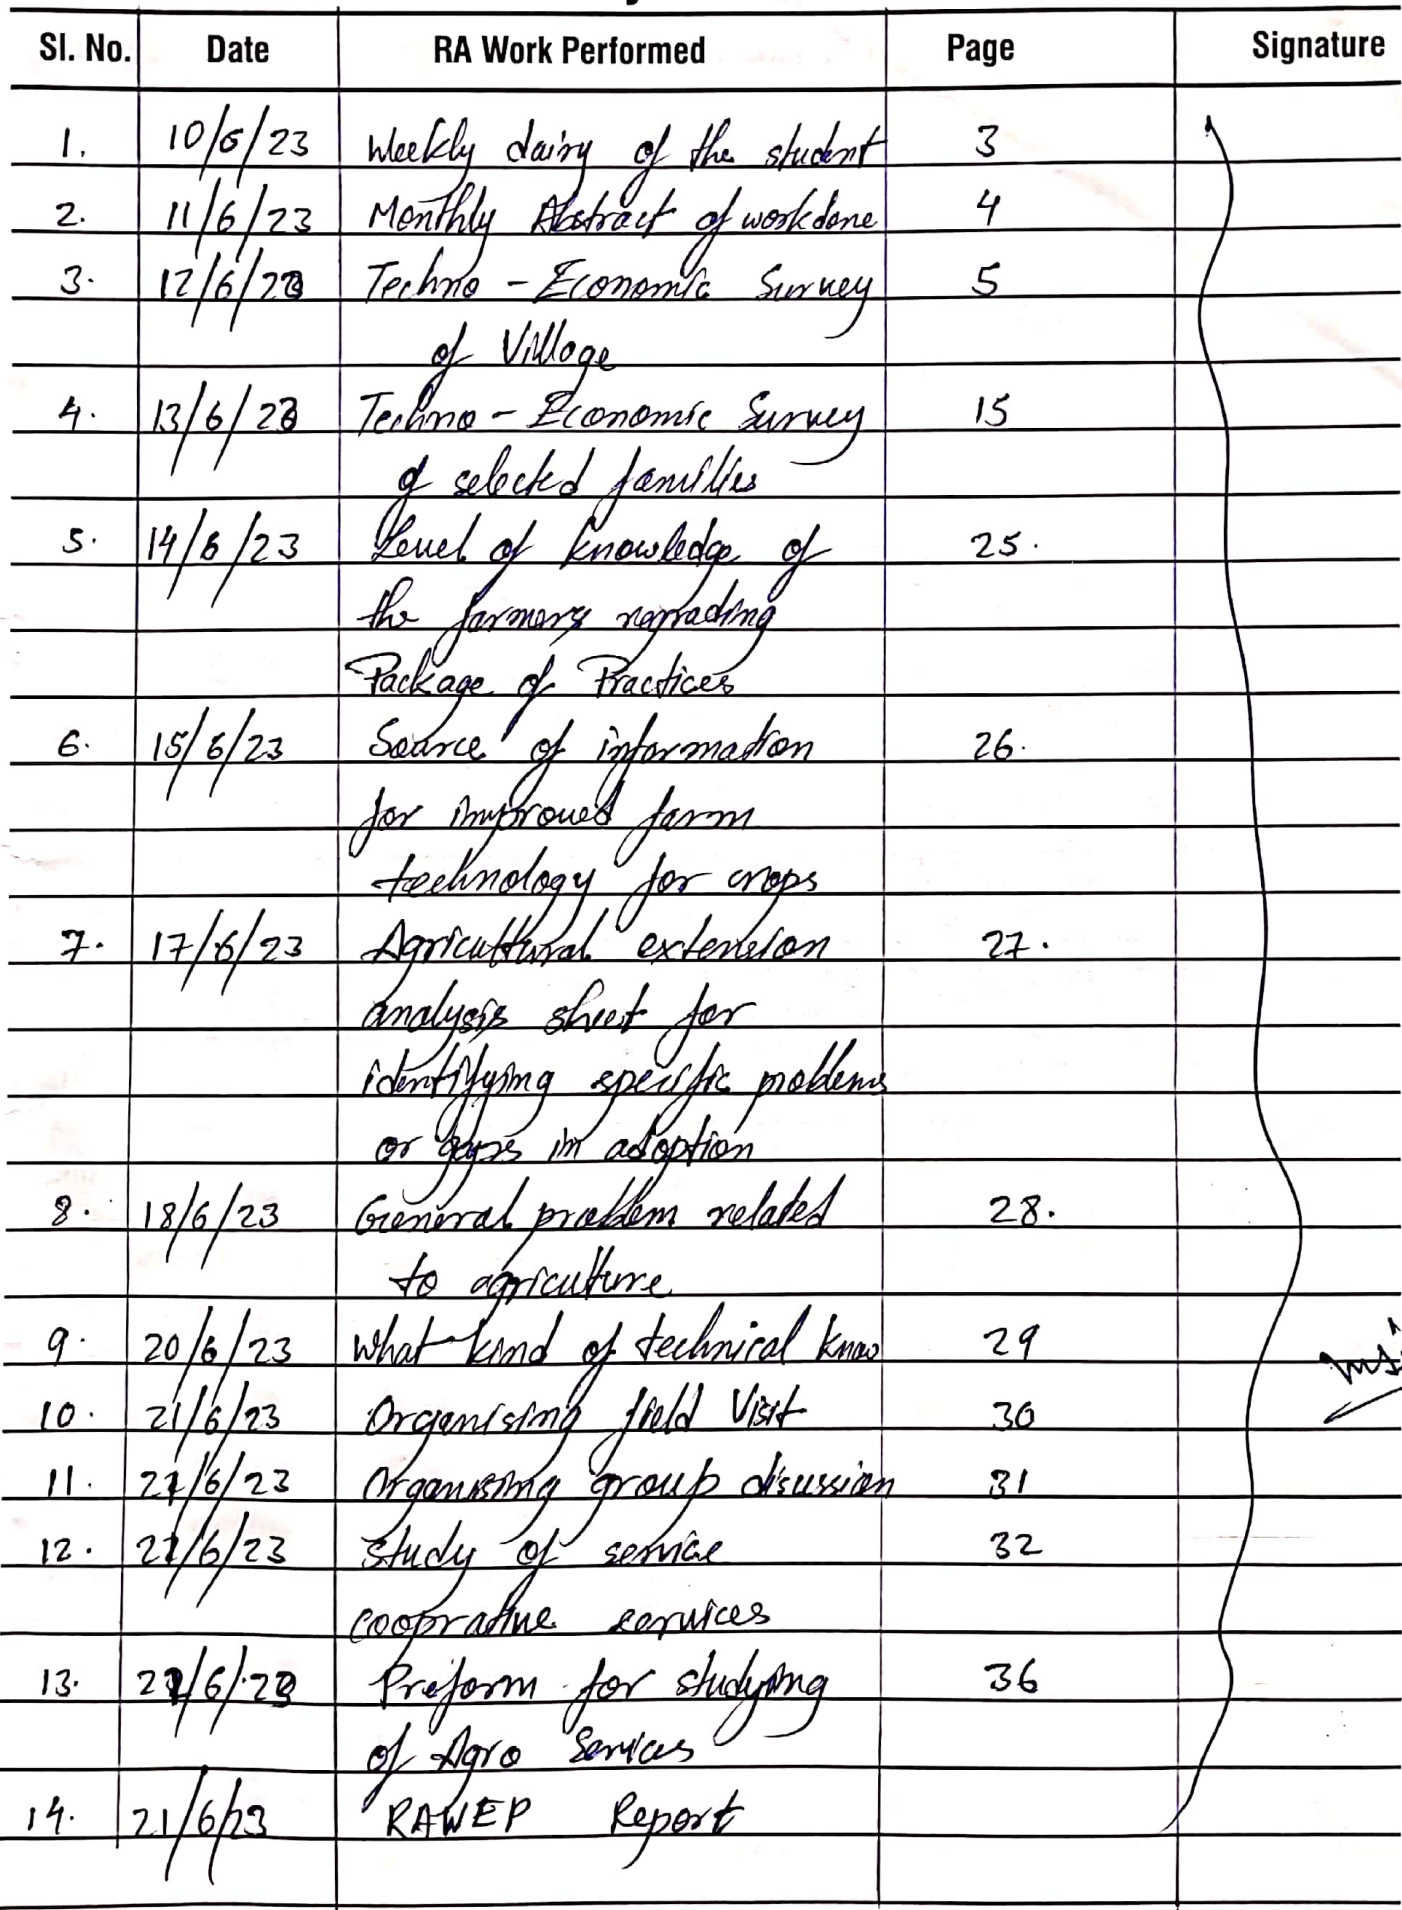 Sl. No. Date RA Work Performed Page Signature
1. 10/6/23 Weekly dairy of the student 3
2. 11/6/23 Monthly Abstract of workdone 4
3. 12/6/23 Techno - Economic Survey 5
of Village
4. 13/6/23 Techno - Economic Survey 15
of selected families
5. 14/6/23 Level of knowledge of 25.
the farmers regrading
Package of Practices
6. 15/6/23 Source of information 26.
for improved farm
technology for crops
7. 17/6/23 Agricultural extension 27.
analysis sheet for
identifying specific problems
or gaps in adoption
8. 18/6/23 General problem related 28.
to agriculture
9. 20/6/23 What kind of technical know 29
10. 21/6/23 Organising field Visit 30
11. /6/23 Organising group discussion 31
12. /6/23 Study of service 32
cooprative services
13. /6/23 Preform for studying 36
of Agro Services
14. 21/6/23 RAWEP Report